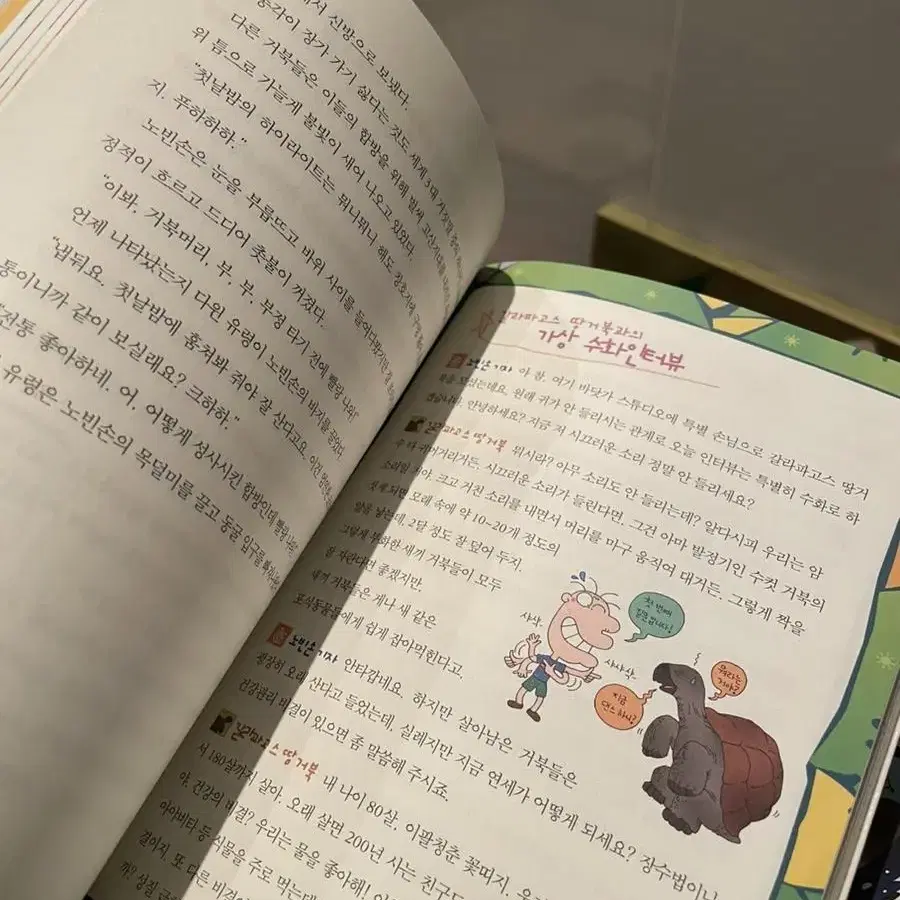 서 신방으로 보냈다.
총각이 장가 가기 싫다는 것도 세계 3대 거짓말 중의
다른 거북들은 이들의 합방을 위해 벌써 고산지대를
위 틈으로 가늘게 불빛이 새어 나오고 있었다.
"첫날밤의 하이라이트는 뭐니뭐니 해도
지. 푸하하하."
노빈손은 눈을 부릅뜨고 바위 사이를 들여다봤지만
정적이 흐르고 드디어 촛불이 꺼졌다.
"이봐, 거북머리, 부, 부, 부정 타기 전에 빨랑 나와."
언제 나타났는지 다윈 유령이 노빈손의 바지를 끌었다.
"냅둬요. 첫날밤에 훔쳐봐 줘야 잘 산다고요. 이건
통이니까 같이 보실래요? 크하하."
"전통 좋아하네. 어, 어떻게 성사시킨 합방인데 빨랑 나와."
유령은 노빈손의 목덜미를 끌고 동굴 입구를
갈라파고스 땅거북과의
가상 수화인터뷰
노빈손 기자 아 참, 여기 바닷가 스튜디오에 특별 손님으로 갈라파고스 땅거
북을 모셨는데요. 원래 귀가 안 들리시는 관계로 오늘 인터뷰는 특별히 수화로 하
겠습니다. 안녕하세요? 지금 저 시끄러운 소리 정말 안 들리세요?
갈라파고스 땅거북 뭐시라? 아무 소리도 안 들리는데? 알다시피 우리는 암
수 다 귀머거리거든. 시끄러운 소리가 들린다면, 그건 아마 발정기인 수컷 거북의
소리일 거야. 크고 거친 소리를 내면서 머리를 마구 움직여 대거든. 그렇게 짝을
짓게 되면 모래 속에 약 10~20개 정도의
알을 낳는데, 2달 정도 잘 덮어 두지.
그렇게 부화한 새끼 거북들이 모두
잘 자란다면 좋겠지만,
새끼 거북들은 게나 새 같은
포식동물들에게 쉽게 잡아먹힌다고.
사삭.
첫 번째
질문입니다!
샤샤삭.
지금
댄스 하니?
뭐라는
거야?
노빈손 기자 안타깝네요. 하지만 살아남은 거북들은
굉장히 오래 산다고 들었는데, 실례지만 지금 연세가 어떻게 되세요? 장수법이나
건강관리 비결이 있으면 좀 말씀해 주시죠.
갈라파고스 땅거북 내 나이 80살, 이팔청춘 꽃띠지.
서 180살까지 살아. 오래 살면 200년 사는 친구도
야. 건강의 비결? 우리는 물을 좋아해!
아야버티 등 식물을 주로 먹는데
결이지. 또 다른 비결
까? 성질